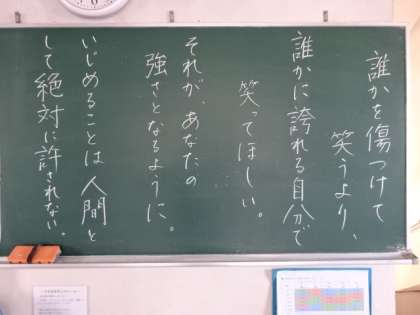 誰かを傷つけて
笑うより、
誰かに誇れる自分で
笑ってほしい。
それが、あなたの
強さとなるように。
いじめることは人間と
して絶対に許されない。